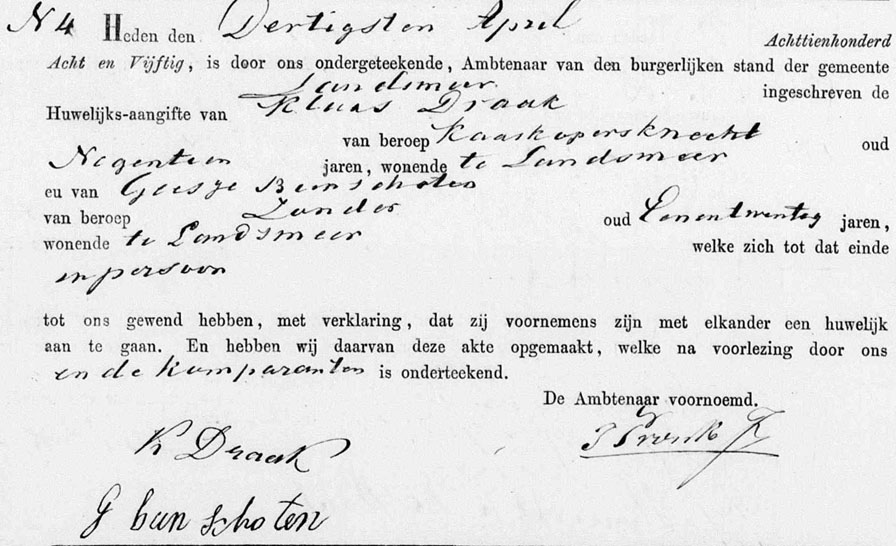 N 4 Heden den Dertigsten April Achttienhonderd
Acht en Vijftig, is door ons ondergeteekende, Ambtenaar van den burgerlijken stand der gemeente
Landsmeer ingeschreven de
Huwelijks-aangifte van Klaas Draak
van beroep Kaaskopersknecht oud
Negentien jaren, wonende te Landsmeer
en van Geesje Bunschoten
van beroep Zonder oud Eenentwintig jaren,
wonende te Landsmeer welke zich tot dat einde
in persoon
tot ons gewend hebben, met verklaring, dat zij voornemens zijn met elkander een huwelijk
aan te gaan. En hebben wij daarvan deze akte opgemaakt, welke na voorlezing door ons
en de Komparanten is onderteekend.
De Ambtenaar voornoemd.
K Draak
G bunschoten